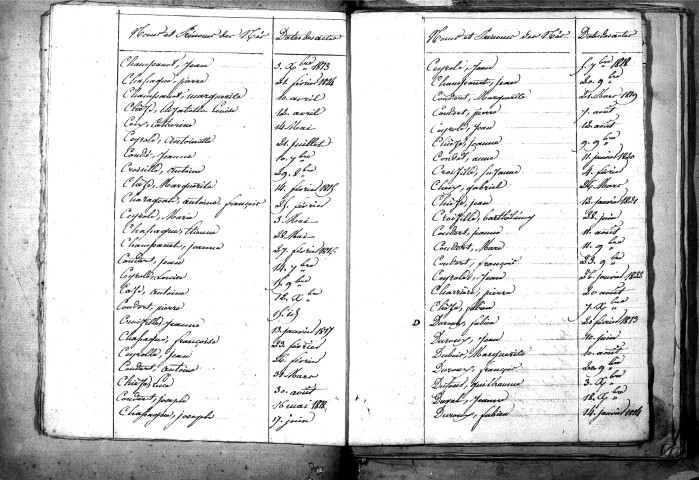 Noms et Prénoms des Nés Dates des actes
Champanat, Jean 3. Xbre 1813
Chassague, pierre 21. février 1814
Champanat, marguerite 10. avril
12. avril
Coix, Catherine 14. Mai
Coyrolé, Antoinette 21. juillet
Condat, Jeanne 10. 7bre
Croisille, Antoine 29. 8bre
Chièze, Marguerite 14. février 1815
Antoine françois 25. février
Coyrolé, Marie 3. Mai
Chassague, Etienne 22. Mai
Champanat, jeanne 27. février 1816
Condart, jean 14. 7bre
Coyrolé, Louise 15. 9bre
Antoine 12. Xbre
Condart, pierre
Croisille, jeanne 13. janvier 1817
Chassague, françoise 23. février
Coyrolle, Jean 26. février
Condart, antoine 31. Mars
Chièze 30. août
Condart, joseph 16 mai 1818.
Chassagne, joseph 17. juin
Noms et Prénoms des Nés Dates des actes
Coyrolé, Jean 5. 7bre 1818
Champanat, jean 20. 9bre
Condart, Marguerite 21. Mars 1819
Condart, pierre 7. août
Coyrolé, Jean 12. août
Chièze, jeanne 9. 9bre
Condat, anne 11. janvier 1820
Croisille, Suzanne 4. février
gabriel 26. Mars
Chièze, jean 13. janvier 1821
Croisille, barthélemy 22. juin
Condart, jeanne 11. août
Condart, Marc 11. 9bre
Condart, françois 23. 9bre
Coyrolé, Jean 26. janvier 1822
Charrière, pierre 20 août
Chièze, julien 7. Xbre
D Duroux, julien 20 février 1813
Duroux, Jean 10. juin
Dubois, Marguerite 10. août
Duroux, françois 20. 9bre
Guilhaume 3. Xbre
Duval, Jeanne 12. Xbre
Duroux, julien 14. janvier 1814